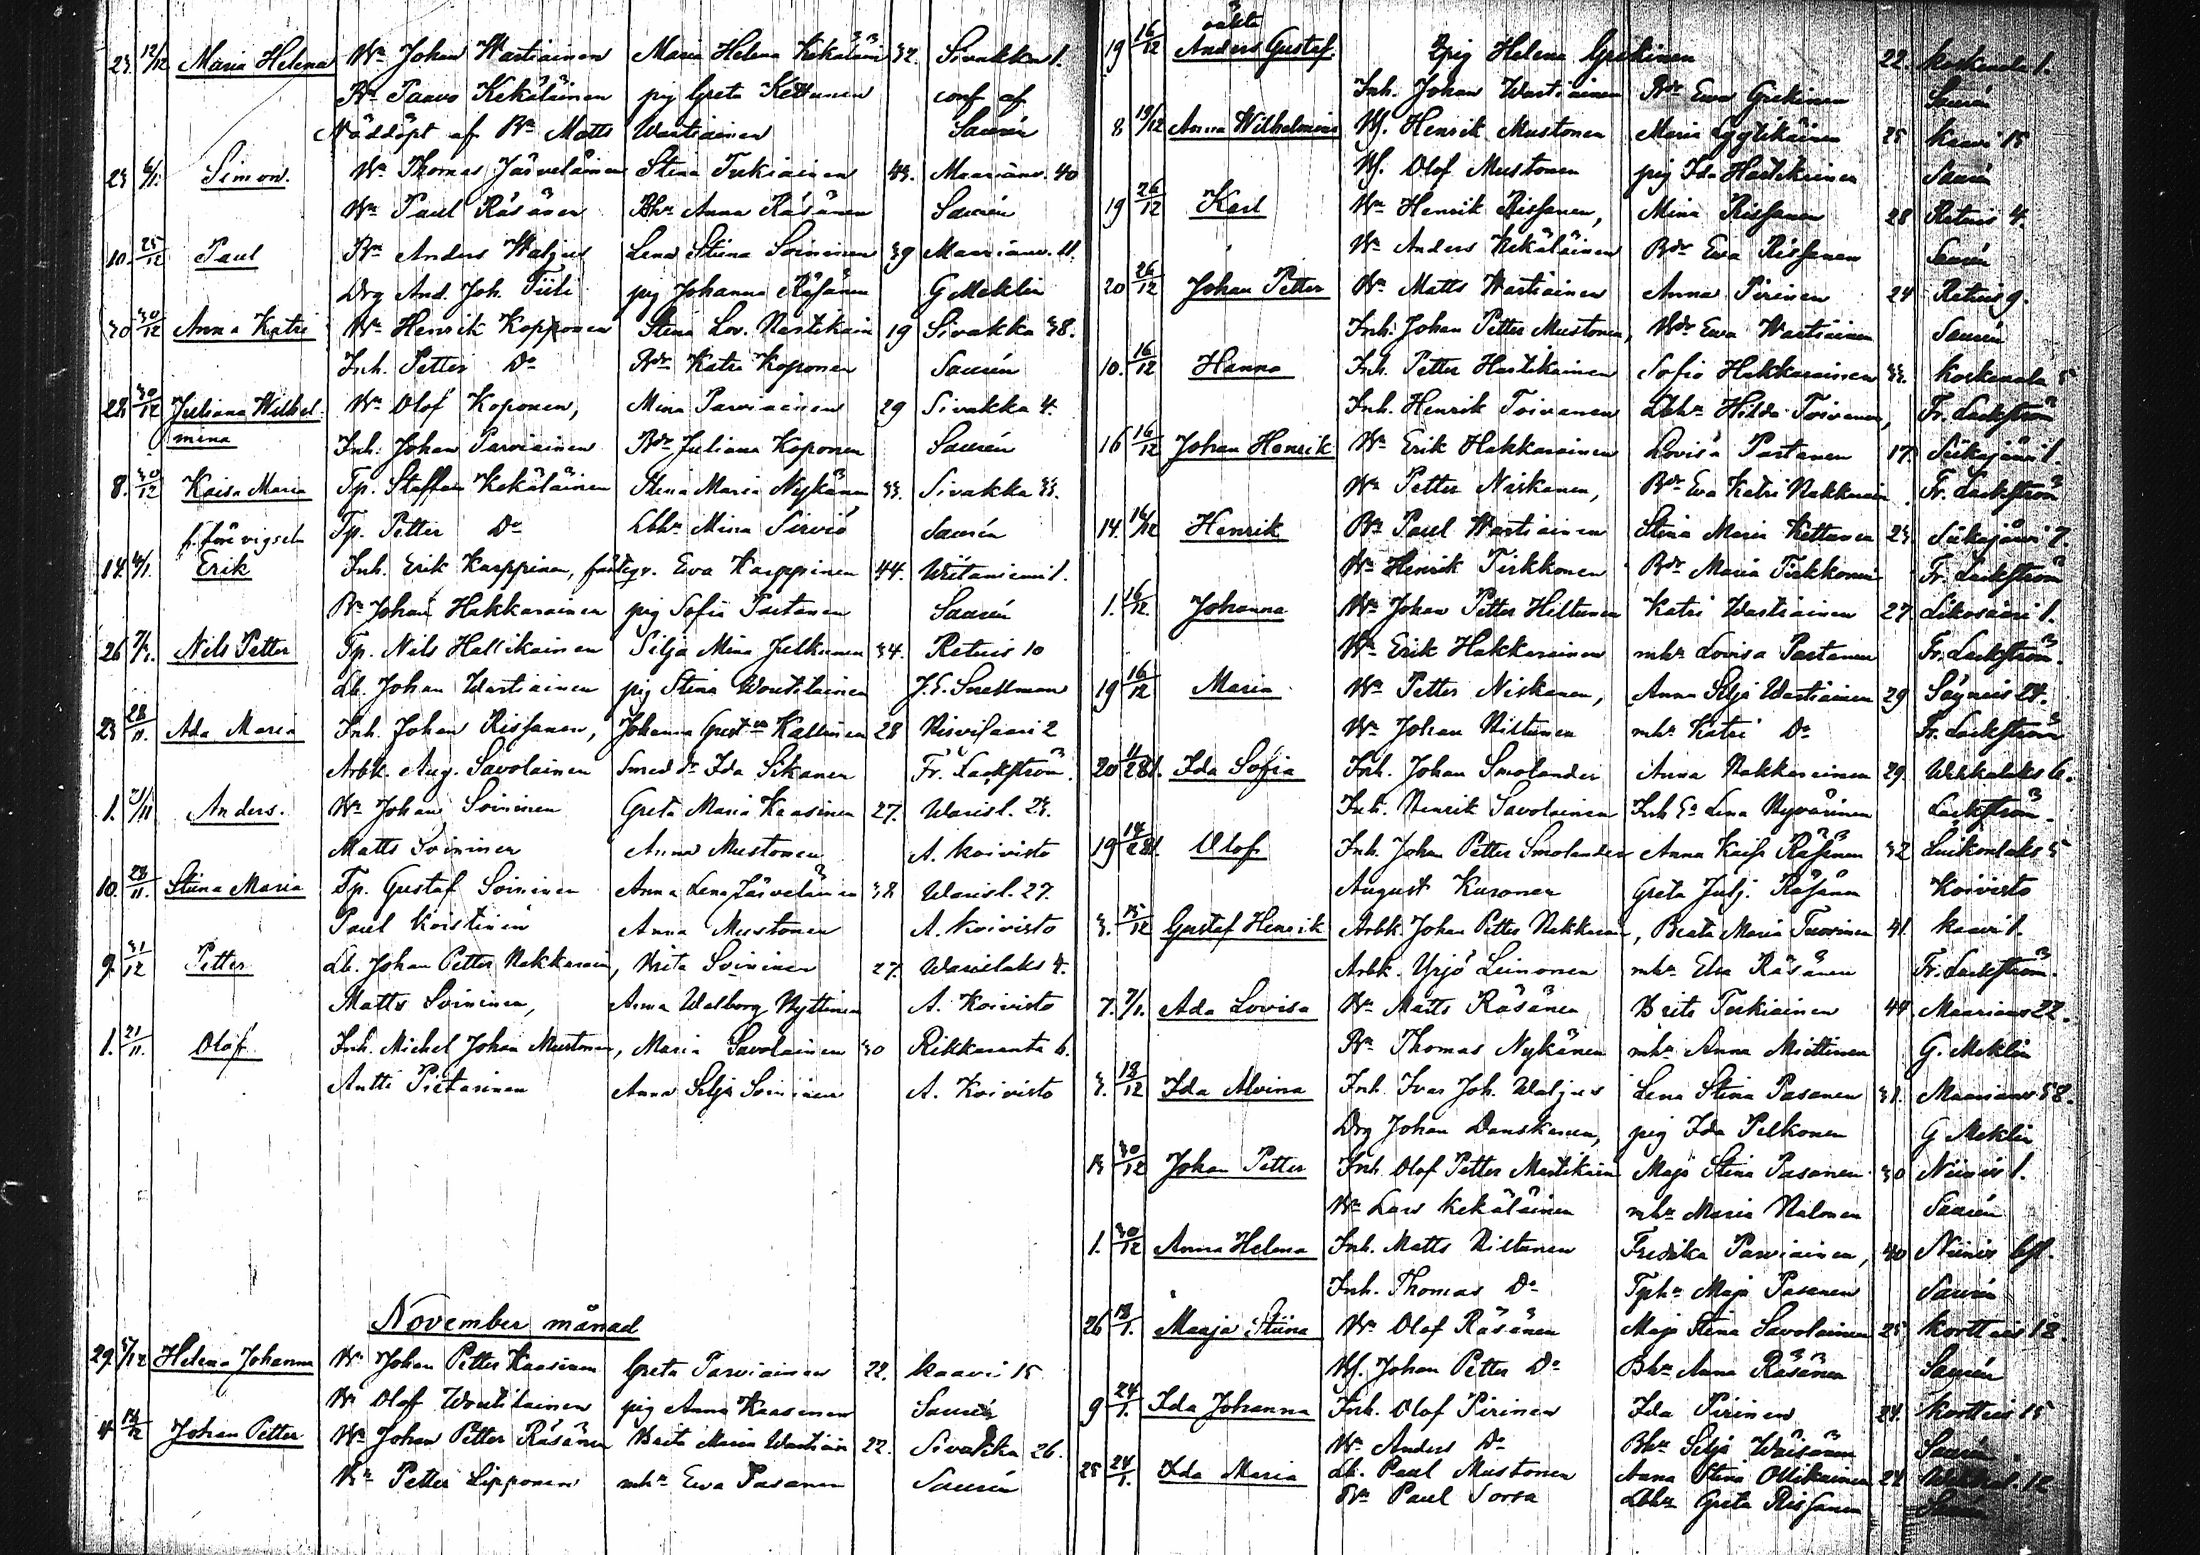 23. 12/12 Maria Helena Bn Johan Wartiainen Maria Helena Kekäläinen 32. Sivakka 1.
Bn Paavo Kekäläinen pig Greta Kettunen conf af
Nöddöpt af Bn Matts Wartiainen Saurén
23 6/1. Simon. Bn Thomas Järveläinen Stina Tukiainen 43. Maarianv. 40
Bn Paul Räsänen Bhu Anna Räsänen Saurén
10. 25/12 Paul Bn Anders Waljus Lena Stiina Soininen 39 Maarianv. 11.
Drg And. Joh. Tiili pig Johanna Räsänen G Meklin
30 30/12 Anna Katri Bn Henrik Kopponen Stina Lov. Hartikain 19 Sivakka 38.
Inh. Petter Do Bdr Katri Koponen Saurén
28 30/12 Juliana Wilhel- Bn Olof Koponen, Mina Parviainen 29 Sivakka 4.
mina Inh. Johan Parviainen Bdr Juliana Koponen Saurén
8. 30/12 Kaisa Maria Tp. Staffan Kekäläinen Stina Maria Nykänen 33. Sivakka 33.
f. före vigseln Tp. Petter Do Lbhu Mina Serviö Saurén
14. 6/1. Erik Inh. Erik Karppinen, fattigv. Eva Karppinen 44. Wiitaniemi 1.
Bn Johan Hakkarainen pig Sofia Partanen Saurén
26 7/1. Nils Petter Tp. Nils Hallikainen Silja Mina Julkunen 34. Retuis 10
Lb. Johan Wartiainen pig Stina Woutilainen J. E. Snellman
23 28/11. Ada Maria Inh. Johan Rissanen, Johanna Gust. Kallinen 28 Niinisaari 2
Arbk. Aug. Savolainen Smed dr Ida Sikanen Fr. Lackström.
1. 21/11 Anders. Bn Johan Soininen Greta Maria Kaasinen 27. Warisl. 23.
Matts Soininen Anna Mustonen A. Koivisto
10. 23/11. Stiina Maria Tp. Gustaf Soininen Anna Lena Järveläinen 38 Warisl. 27.
Paul Koistinen Anna Mustonen A. Koivisto
9. 31/12 Petter Lb. Johan Petter Hakkarain, Brita Soininen 27. Warislaks 4.
Matts Soininen, Anna Walborg Hyttinen A. Koivisto
1. 21/11. Olof. Inh. Michel Johan Mustonen, Maria Savolainen 30 Rikkaranta 6.
Antti Pietarinen Anna Silja Soininen A. Koivisto
November månad
29. 5/12 Helena Johanna Bn Johan Petter Kaasinen Greta Parviainen 22. Kaavi 15
Bn Olof Woutilainen pig Anna Kaasinen Saurén
4 12/12 Johan Petter Bn Johan Petter Räsänen Brita Maria Wartiain 22. Sivakka 26.
Bn Petter Lipponen mhu Eva Pasanen Saurén
oäkta
19 16/12 Anders Gustaf. Bpig Helena Grekinen 22. Koskenala 1.
Inh. Johan Wartiainen Bdr Eva Grekinen Saurén
8 19/12 Anna Wilhelmina Bf. Henrik Mustonen Maria Lyytikäinen 25 Kaavi 15
Bf. Olof Mustonen pig Ida Hartikainen Saurén
19 26/12 Karl Bn Henrik Rissanen, Mina Rissanen 28 Retuis 4.
Bn Anders Kekäläinen Bdr Eva Rissanen Saurén
20 26/12 Johan Petter Bn Matts Wartiainen Anna Pirinen 24 Retuis 9.
Inh. Johan Petter Mustonen, Bdr Eva Wartiainen Saurén
10. 16/12 Hanna Inh. Petter Hartikainen Sofia Hakkarainen 33. Koskenala 5
Inh. Henrik Toivanen Lbhu Hilda Toivanen, Fr. Lackström
16 16/12 Johan Henrik Bn Erik Hakkarainen Lovisa Partanen 17. Siikajärvi 1.
Bn Petter Niskanen, Bdr Eva Katri Hakkarain Fr. Lackström
14. 16/12 Henrik Bn Paul Wartiainen Stina Maria Kettunen 23 Siikajärvi 7.
Bn Henrik Tirkkonen Bdr Maria Tirkkonen Fr. Lackström
1. 16/12. Johanna Bn Johan Petter Hiltunen Katri Wartiainen 27. Likosaari 1.
Bn Erik Hakkarainen mhu Lovisa Partanen Fr. Lackström.
19 16/12 Maria Bn Petter Niskanen, Anna Silja Wartiainen 29 Säyneis 24.
Bn Johan Hiltunen mhu Katri Do Fr. Lackström
20 Ida Sofia Inh. Johan Smolander Anna Hakkarainen 29. 6.
Inh. Henrik Savolainen Inh Ea Lena Hyvärinen Lackström.
19 Olof Inh. Johan Petter Smolander Anna Kaisa Räsänen 32 Luikonlaks 5
August Kuronen Greta Julj. Räsänen Koivisto
3. 15/12 Gustaf Henrik Arbk. Johan Petter Hakkarain, Beata Maria Tuovinen 41. Kaavi 1.
Arbk. Yrjö Leinonen mhu Elsa Räsänen Fr. Lackström.
7. 7/1. Ada Lovisa Bn Matts Räsänen Brita Tukiainen 44 Maarianv 22.
Bn Thomas Nykänen mhu Anna Miettinen G. Meklin
3. 13/12 Ida Alvina Inh. Ivar Joh. Waljus Lena Stina Pasanen 31. Maarianv 58.
Drg Johan Danskanen, pig Ida Pelkonen G Meklin
13 30/12 Johan Petter Inh. Olof Petter Martikain Maja Stina Pasanen 30 Niinis 1.
Bn Lars Kekäläinen mhu Maria Halonen Saurén
1. 30/12 Anna Helena Inh. Matts Hiltunen Fredrika Parviainen, 40 Niinis
Inh. Thomas Do Tphu Maja Pasanen Saurén
26 13/1. Maaja Stiina Bn Olof Räsänen Maja Stina Savolainen 25 Kortteis 12.
Bf. Johan Petter Do Bhu Anna Räsänen Saurén
9 24/1. Ida Johanna Inh. Olof Pirinen Ida Pirinen 24. Kortteis 15
Bn Anders Do Bhu Silja Wäisänen Saurén
25 24/1. Ida Maria Lb. Paul Mustonen Anna Stina Ollikainen 24 12
Bn Paul Sorsa Lbhu Greta Rissanen Saurén